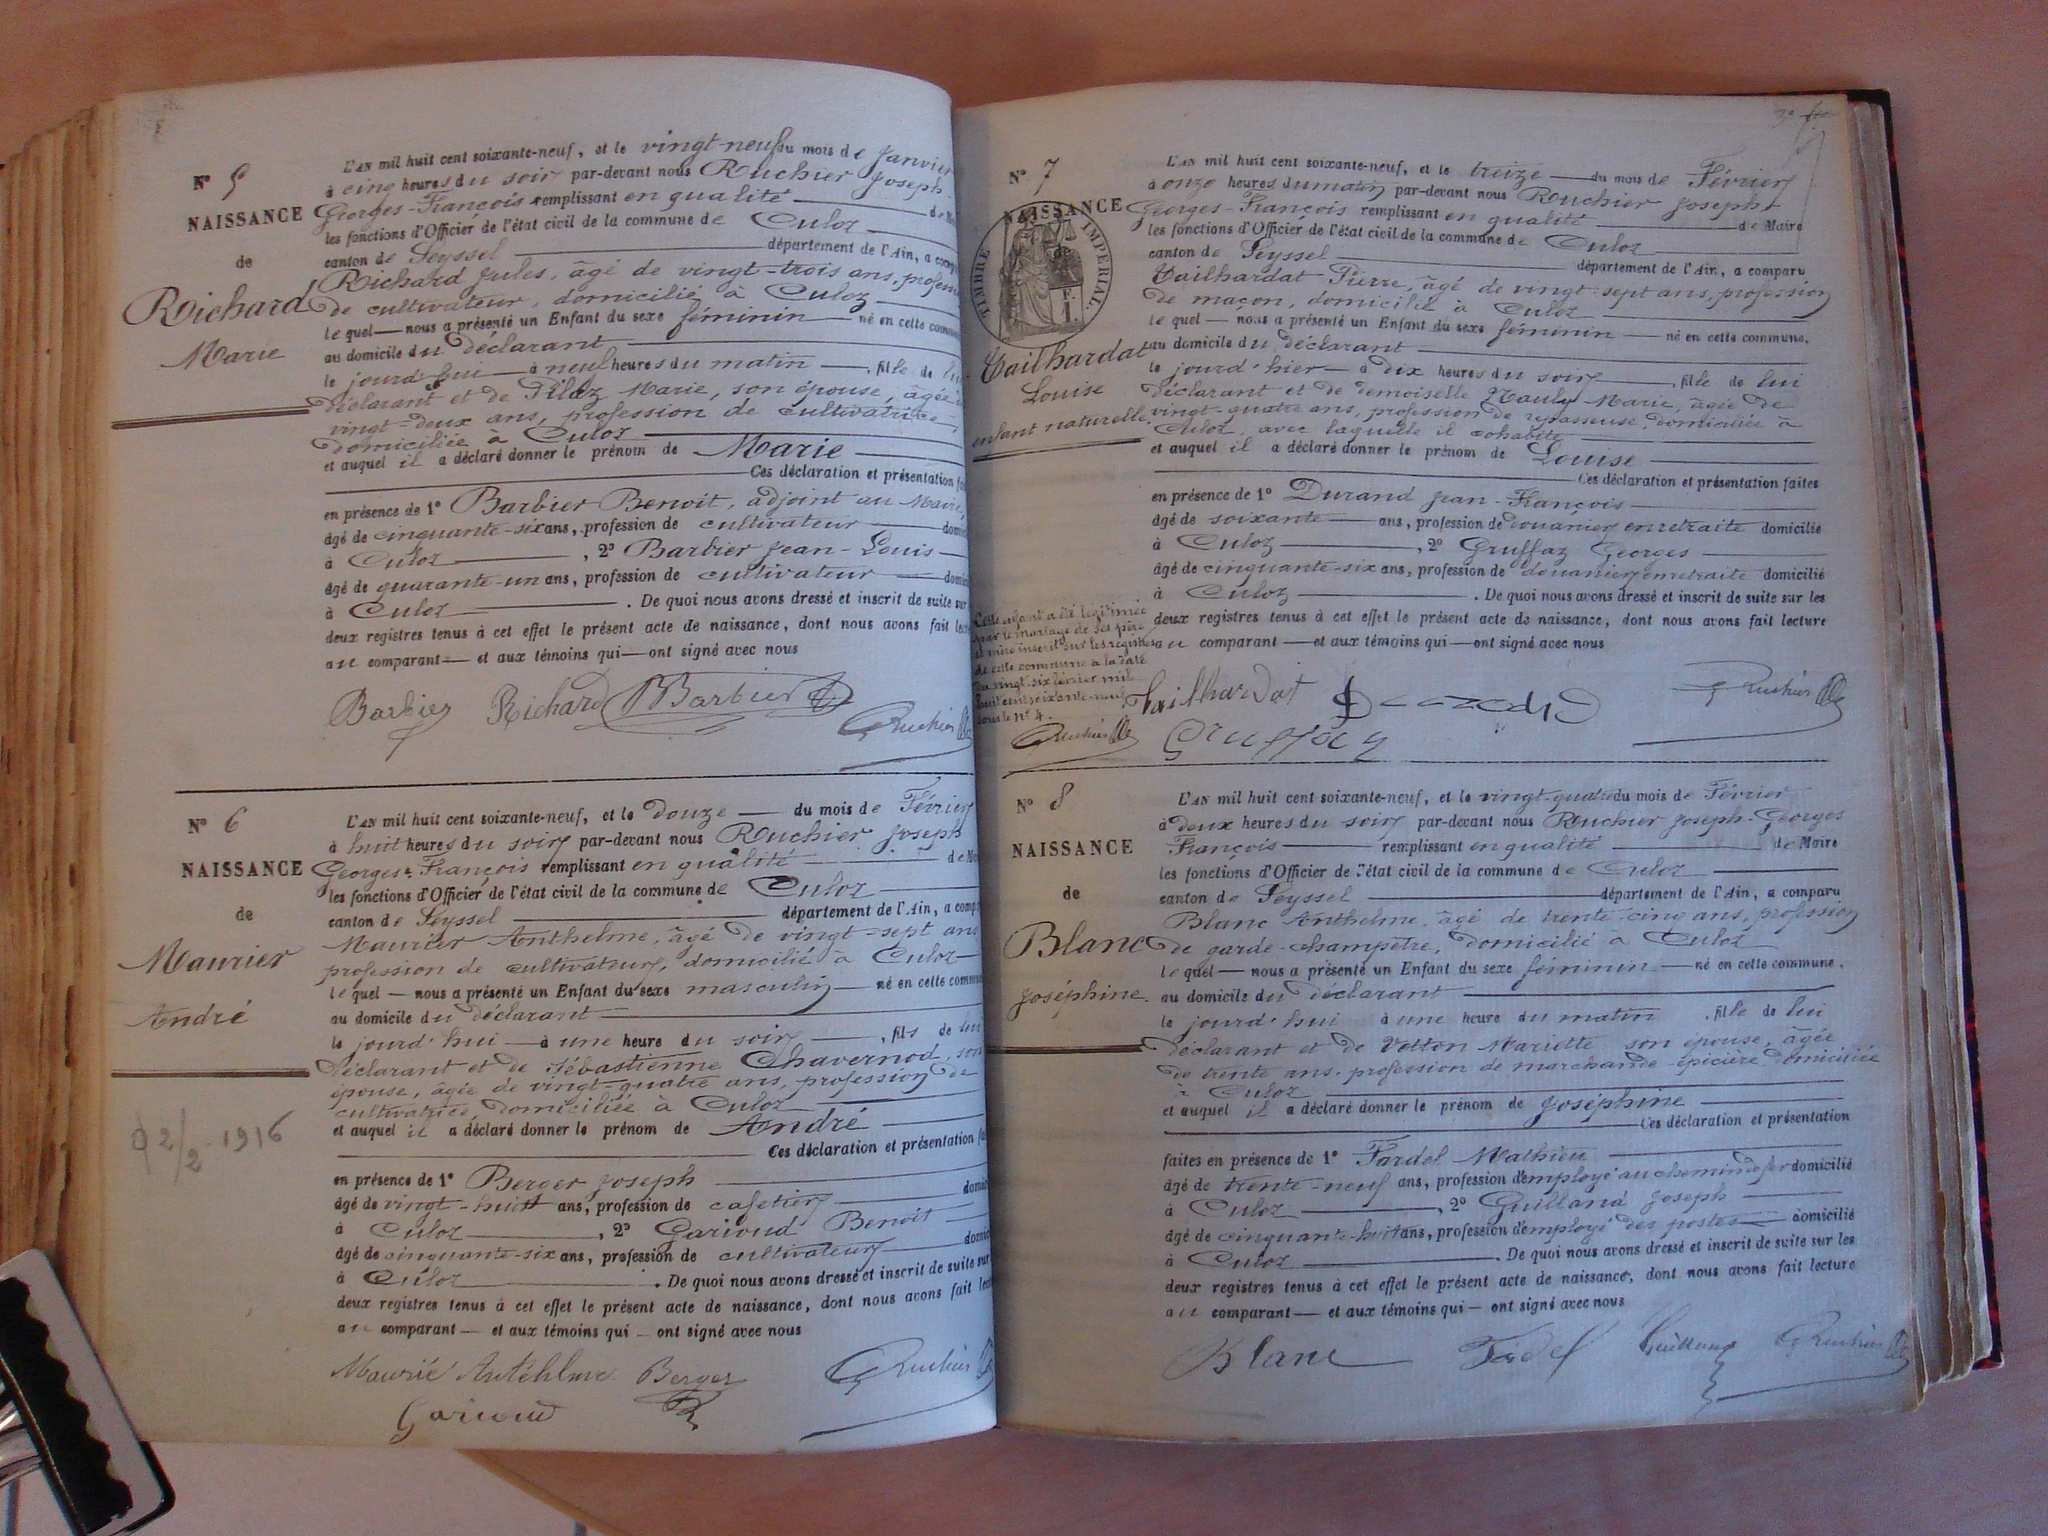 N° 5
NAISSANCE
de
Richard
Marie
L'AN mil huit cent soixante-neuf, et le vingt-neuf du mois de Janvier
à cinq heures du soir par-devant nous Ruchier Joseph-
Georges-François remplissant en qualité de
les fonctions d'Officier de l'état civil de la commune de Culoz
canton de Seyssel département de l'Ain, a
Richard Jules, âgé de vingt-trois ans,
de cultivateur, domicilié à Culoz
le quel nous a présenté un Enfant du sexe féminin né en cette
au domicile du déclarant
le jourd'hui à neuf heures du matin, fille de lui
déclarant et de Pilaz Marie, son épouse, âgée
vingt-deux ans, profession de cultivatrice,
domiciliée à Culoz
et auquel il a déclaré donner le prénom de Marie
Ces déclaration et présentation
en présence de 1° Barbier Benoit, adjoint au Maire,
âgé de cinquante-six ans, profession de cultivateur
à Culoz, 2° Barbier Jean-Louis
âgé de quarante-un ans, profession de cultivateur
à Culoz. De quoi nous avons dressé et inscrit de suite sur
deux registres tenus à cet effet le présent acte de naissance, dont nous avons fait
au comparant et aux témoins qui ont signé avec nous
Barbier Richard Barbier
Ruchier
N° 6
NAISSANCE
de
Maurier
André
2/2 1916
L'AN mil huit cent soixante-neuf, et le douze du mois de Février
à huit heures du soir par-devant nous Ruchier Joseph
Georges-François remplissant en qualité de
les fonctions d'Officier de l'état civil de la commune de Culoz
canton de Seyssel département de l'Ain, a
Maurier Anthelme, âgé de vingt-sept ans
profession de cultivateur, domicilié à Culoz
le quel nous a présenté un Enfant du sexe masculin né en cette
au domicile du déclarant
le jourd'hui à une heure du soir, fils de lui
déclarant et de Sébastienne Chavernod, son
épouse, âgée de vingt-quatre ans, profession de
cultivatrice, domiciliée à Culoz
et auquel il a déclaré donner le prénom de André
Ces déclaration et présentation
en présence de 1° Berger Joseph
âgé de vingt-huit ans, profession de cafetier
à Culoz, 2° Garioud Benoit
âgé de cinquante-six ans, profession de cultivateur
à Culoz. De quoi nous avons dressé et inscrit de suite sur
deux registres tenus à cet effet le présent acte de naissance, dont nous avons fait
au comparant et aux témoins qui ont signé avec nous
Maurié Antéhlme Berger Ruchier
Garioud
N° 7
NAISSANCE
de
TIMBRE IMPERIAL
1 F.
Tailhardat
Louise
enfant naturelle
L'AN mil huit cent soixante-neuf, et le treize du mois de Février
à onze heures du matin par-devant nous Ruchier Joseph-
Georges-François remplissant en qualité de Maire
les fonctions d'Officier de l'état civil de la commune de Culoz
canton de Seyssel département de l'Ain, a comparu
Tailhardat Pierre, âgé de vingt-sept ans, profession
de maçon, domicilié à Culoz
le quel nous a présenté un Enfant du sexe féminin né en cette commune,
au domicile du déclarant
le jourd'hier à dix heures du soir, fille de lui
déclarant et de demoiselle Marie, âgée de
vingt-quatre ans, profession de repasseuse, domiciliée à
Culoz, avec laquelle il cohabite
et auquel il a déclaré donner le prénom de Louise
Ces déclaration et présentation faites
en présence de 1° Durand Jean-François
âgé de soixante ans, profession de douanier en retraite domicilié
à Culoz, 2° Gruffaz Georges
âgé de cinquante-six ans, profession de douanier en retraite domicilié
à Culoz. De quoi nous avons dressé et inscrit de suite sur les
deux registres tenus à cet effet le présent acte de naissance, dont nous avons fait lecture
au comparant et aux témoins qui ont signé avec nous
Cette enfant a été légitimée
par le mariage de ses père
et mère inscrit sur les registres
de cette commune à la date
du vingt-six février mil
huit cent soixante-neuf
sous le N° 4.
Ruchier
Tailhardat Ruchier
Gruffaz
N° 8
NAISSANCE
de
Blanc
Joséphine
L'AN mil huit cent soixante-neuf, et le vingt-quatre du mois de Février
à deux heures du soir par-devant nous Ruchier Joseph-Georges
François remplissant en qualité de Maire
les fonctions d'Officier de l'état civil de la commune de Culoz
canton de Seyssel département de l'Ain, a comparu
Blanc Anthelme, âgé de trente-cinq ans, profession
de garde-champêtre, domicilié à Culoz
le quel nous a présenté un Enfant du sexe féminin né en cette commune,
au domicile du déclarant
le jourd'hui à une heure du matin, fille de lui
déclarant et de Vetton Mariette son épouse, âgée
de trente ans, profession de marchande épicière domiciliée
à Culoz
et auquel il a déclaré donner le prénom de Joséphine
Ces déclaration et présentation
faites en présence de 1° Fardel Mathieu
âgé de trente-neuf ans, profession d'employé au chemin de fer domicilié
à Culoz, 2° Guilland Joseph
âgé de cinquante-huit ans, profession d'employé des postes domicilié
à Culoz. De quoi nous avons dressé et inscrit de suite sur les
deux registres tenus à cet effet le présent acte de naissance, dont nous avons fait lecture
au comparant et aux témoins qui ont signé avec nous
Blanc Fardel Guilland Ruchier